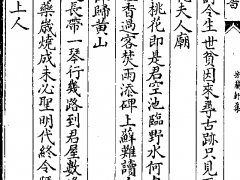 今生世貧因來尋古跡只見
夫人廟
桃花即是君空池臨野水何
有過客焚雨添碑上蘚難讀
歸黃山
長帶一琴行幾路到君屋數
藥歲燒成未必聖明代終令
上人